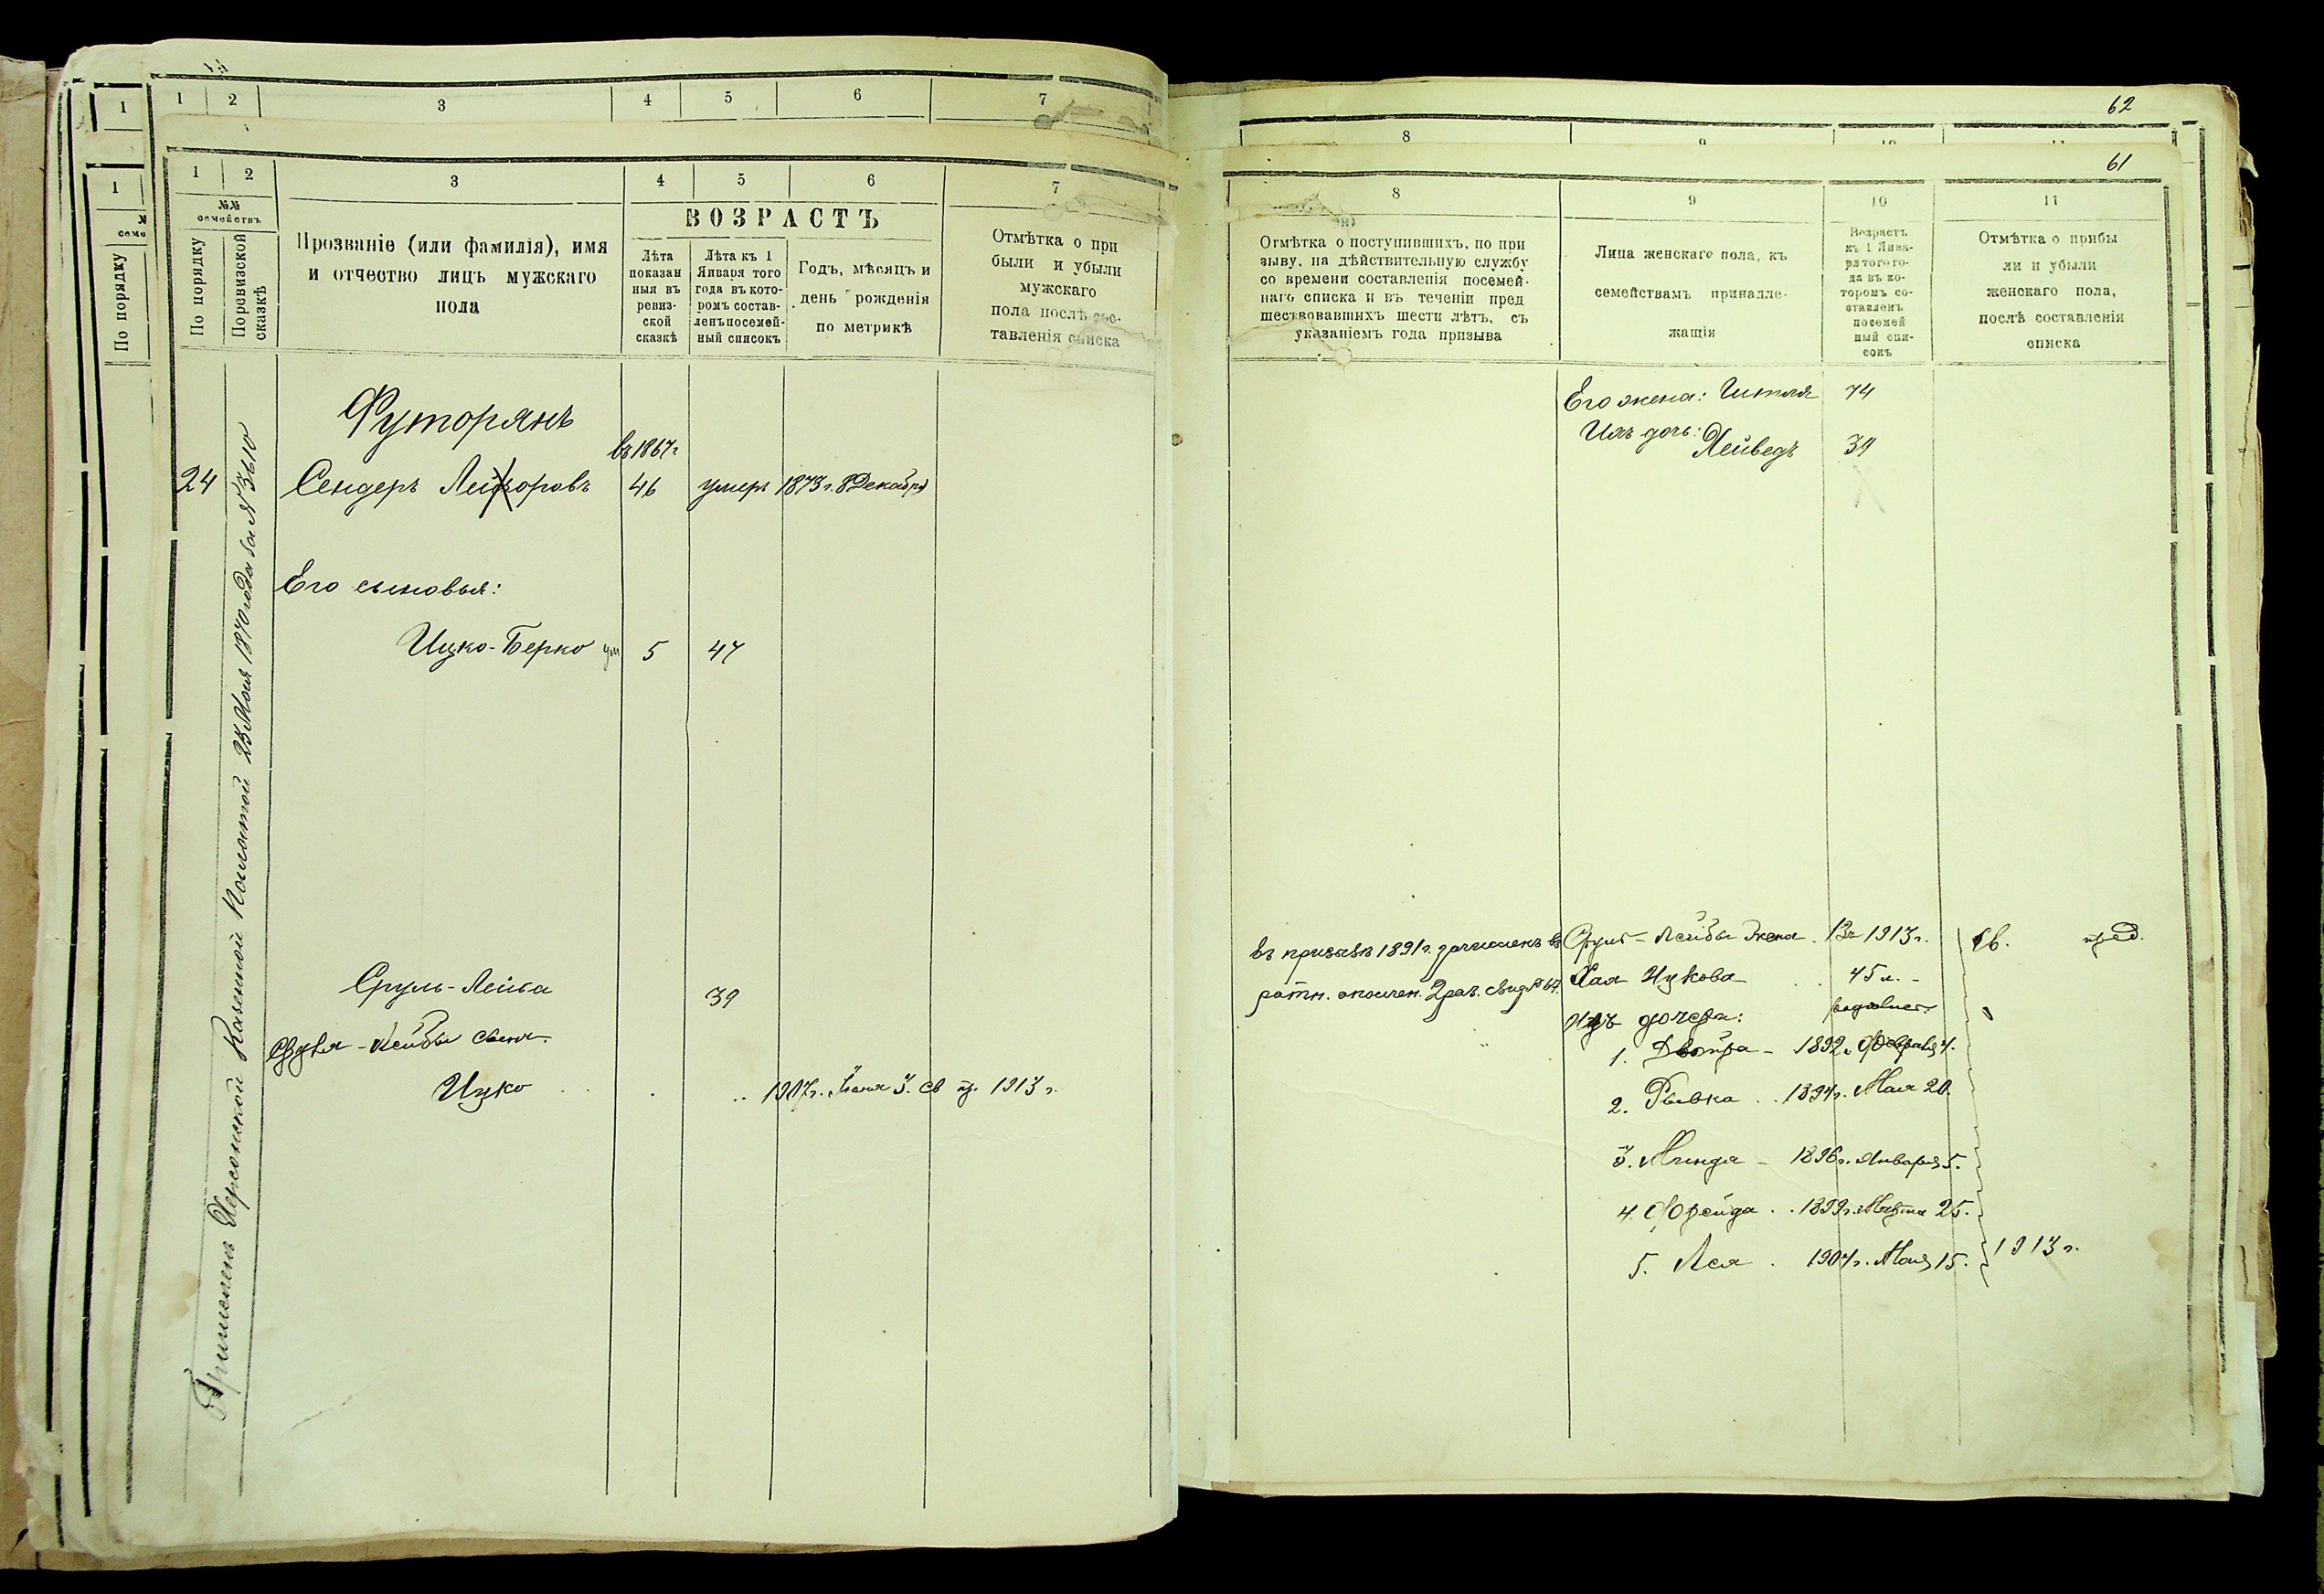 1 2 3 4 5 6 7
1
1 2 3 4 5 6 7
1
№№ семействъ
По порядку
По порядку
Поревизской сказкѣ
3
Прозваніе (или фамилія), имя
и отчество лицъ мужскаго
пола
ВОЗРАСТЪ
Лѣта
показан
ныя въ
ревиз-
ской
сказкѣ
Лѣта къ 1
Января того
года въ кото-
ромъ состав-
ленъ посемей-
ный списокъ
Годъ, мѣсяцъ и
день рожденія
по метрикѣ
Отмѣтка о при
были и убыли
мужскаго
пола послѣ сос-
тавленія списка
Футорянъ
въ 1867 г
24 Сендеръ Лейзоровъ 46 умеръ 1873 г. 8 Декабря
Его сыновья:
Ицко-Берко ум 5 47
Сруль-Лейба 39
Сруля-Лейбы сынъ.
Ицко 1907 г. Іюня 3. св пр. 1913 г.
Причисленъ Херсонской Казенной Палатой 23 Мая 1870 года за № 3610
62
8 9 10 11
61
8 9 10 11
Отмѣтка о поступившихъ, по при
зыву, на дѣйствительную службу
со времени составленія посемей-
наго списка и въ теченіи пред
шествовавшихъ шести лѣтъ, съ
указаніемъ года призыва
Лица женскаго пола, къ
семействамъ принадле-
жащія
Возрастъ
къ 1 Янва-
ря того го-
да въ ко-
торомъ со-
ставленъ
посемей
ный спи-
сокъ
Отмѣтка о прибы
ли и убыли
женскаго пола,
послѣ составленія
списка
Его жена: Гитля 74
Ихъ дочь: Хейведъ 34
въ призывъ 1891 г. зачисленъ въ
ратн. ополчен. 2 раз. свид № 64.
Сруль-Лейбы жена. Въ 1913 г. св. пред.
Хая Ицкова 45 л.
Ихъ дочери: родились:
1. Двойра - 1892 г. Февраля 4.
2. Рывка .. 1894 г. Мая 20.
3. Минда - 1896 г. Января 5.
4. Фрейда .. 1899 г. Марта 25.
5. Лея . 1904 г. Мая 15. 1913 г.